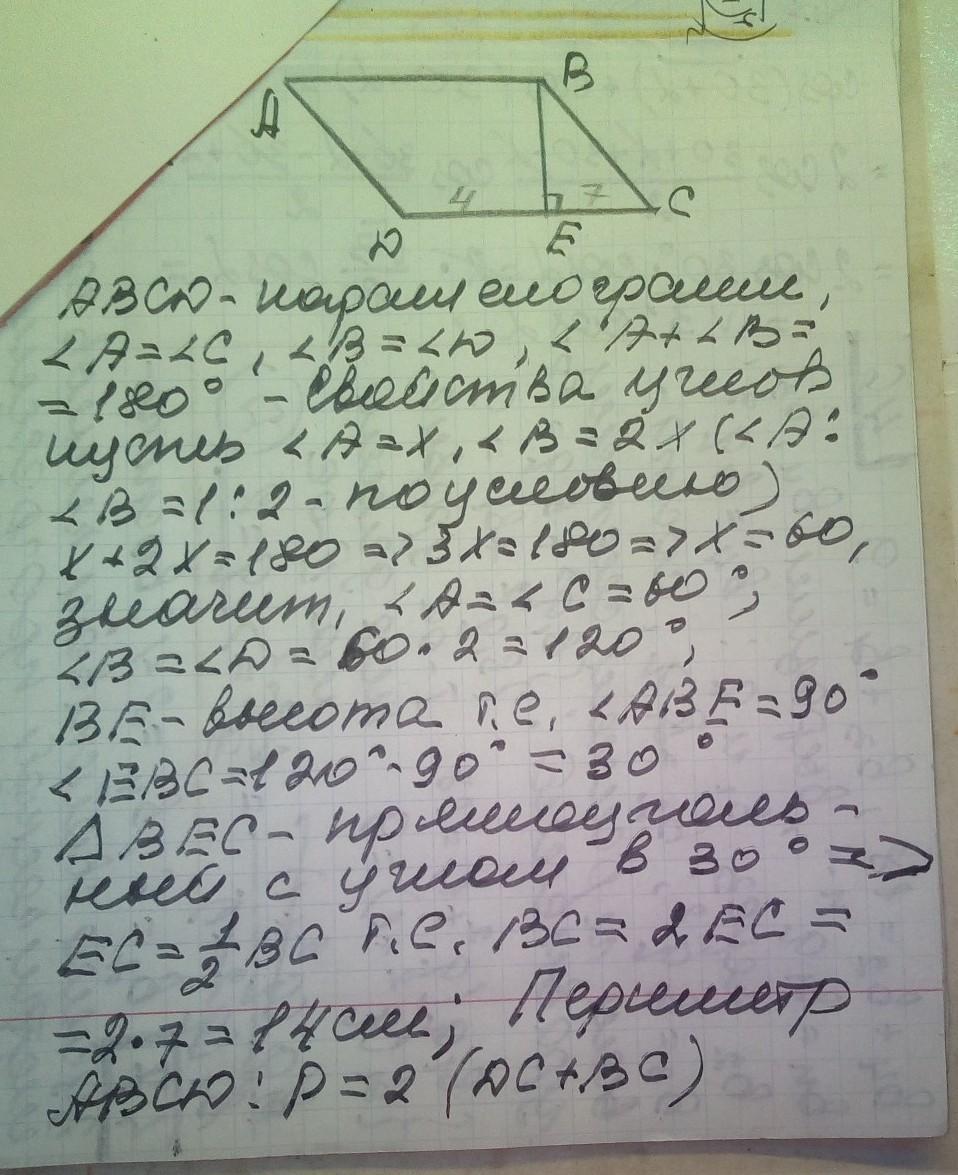 A
B
4
7
C
D
E
ABCD - параллелограмм,
∠A=∠C, ∠B=∠D, ∠A+∠B=
=180° - свойства углов
пусть ∠A=x, ∠B=2x (∠A:
∠B=1:2 - по условию)
x+2x=180 => 3x=180 => x=60,
значит, ∠A=∠C=60°,
∠B=∠D=60·2=120°,
BE - высота т.е. ∠ABE=90°
∠EBC=120°-90°=30°
△BEC - прямоуголь-
ный с углом в 30° =>
EC=1/2BC т.е. BC=2EC=
=2·7=14см; Периметр
ABCD: P=2(DC+BC)